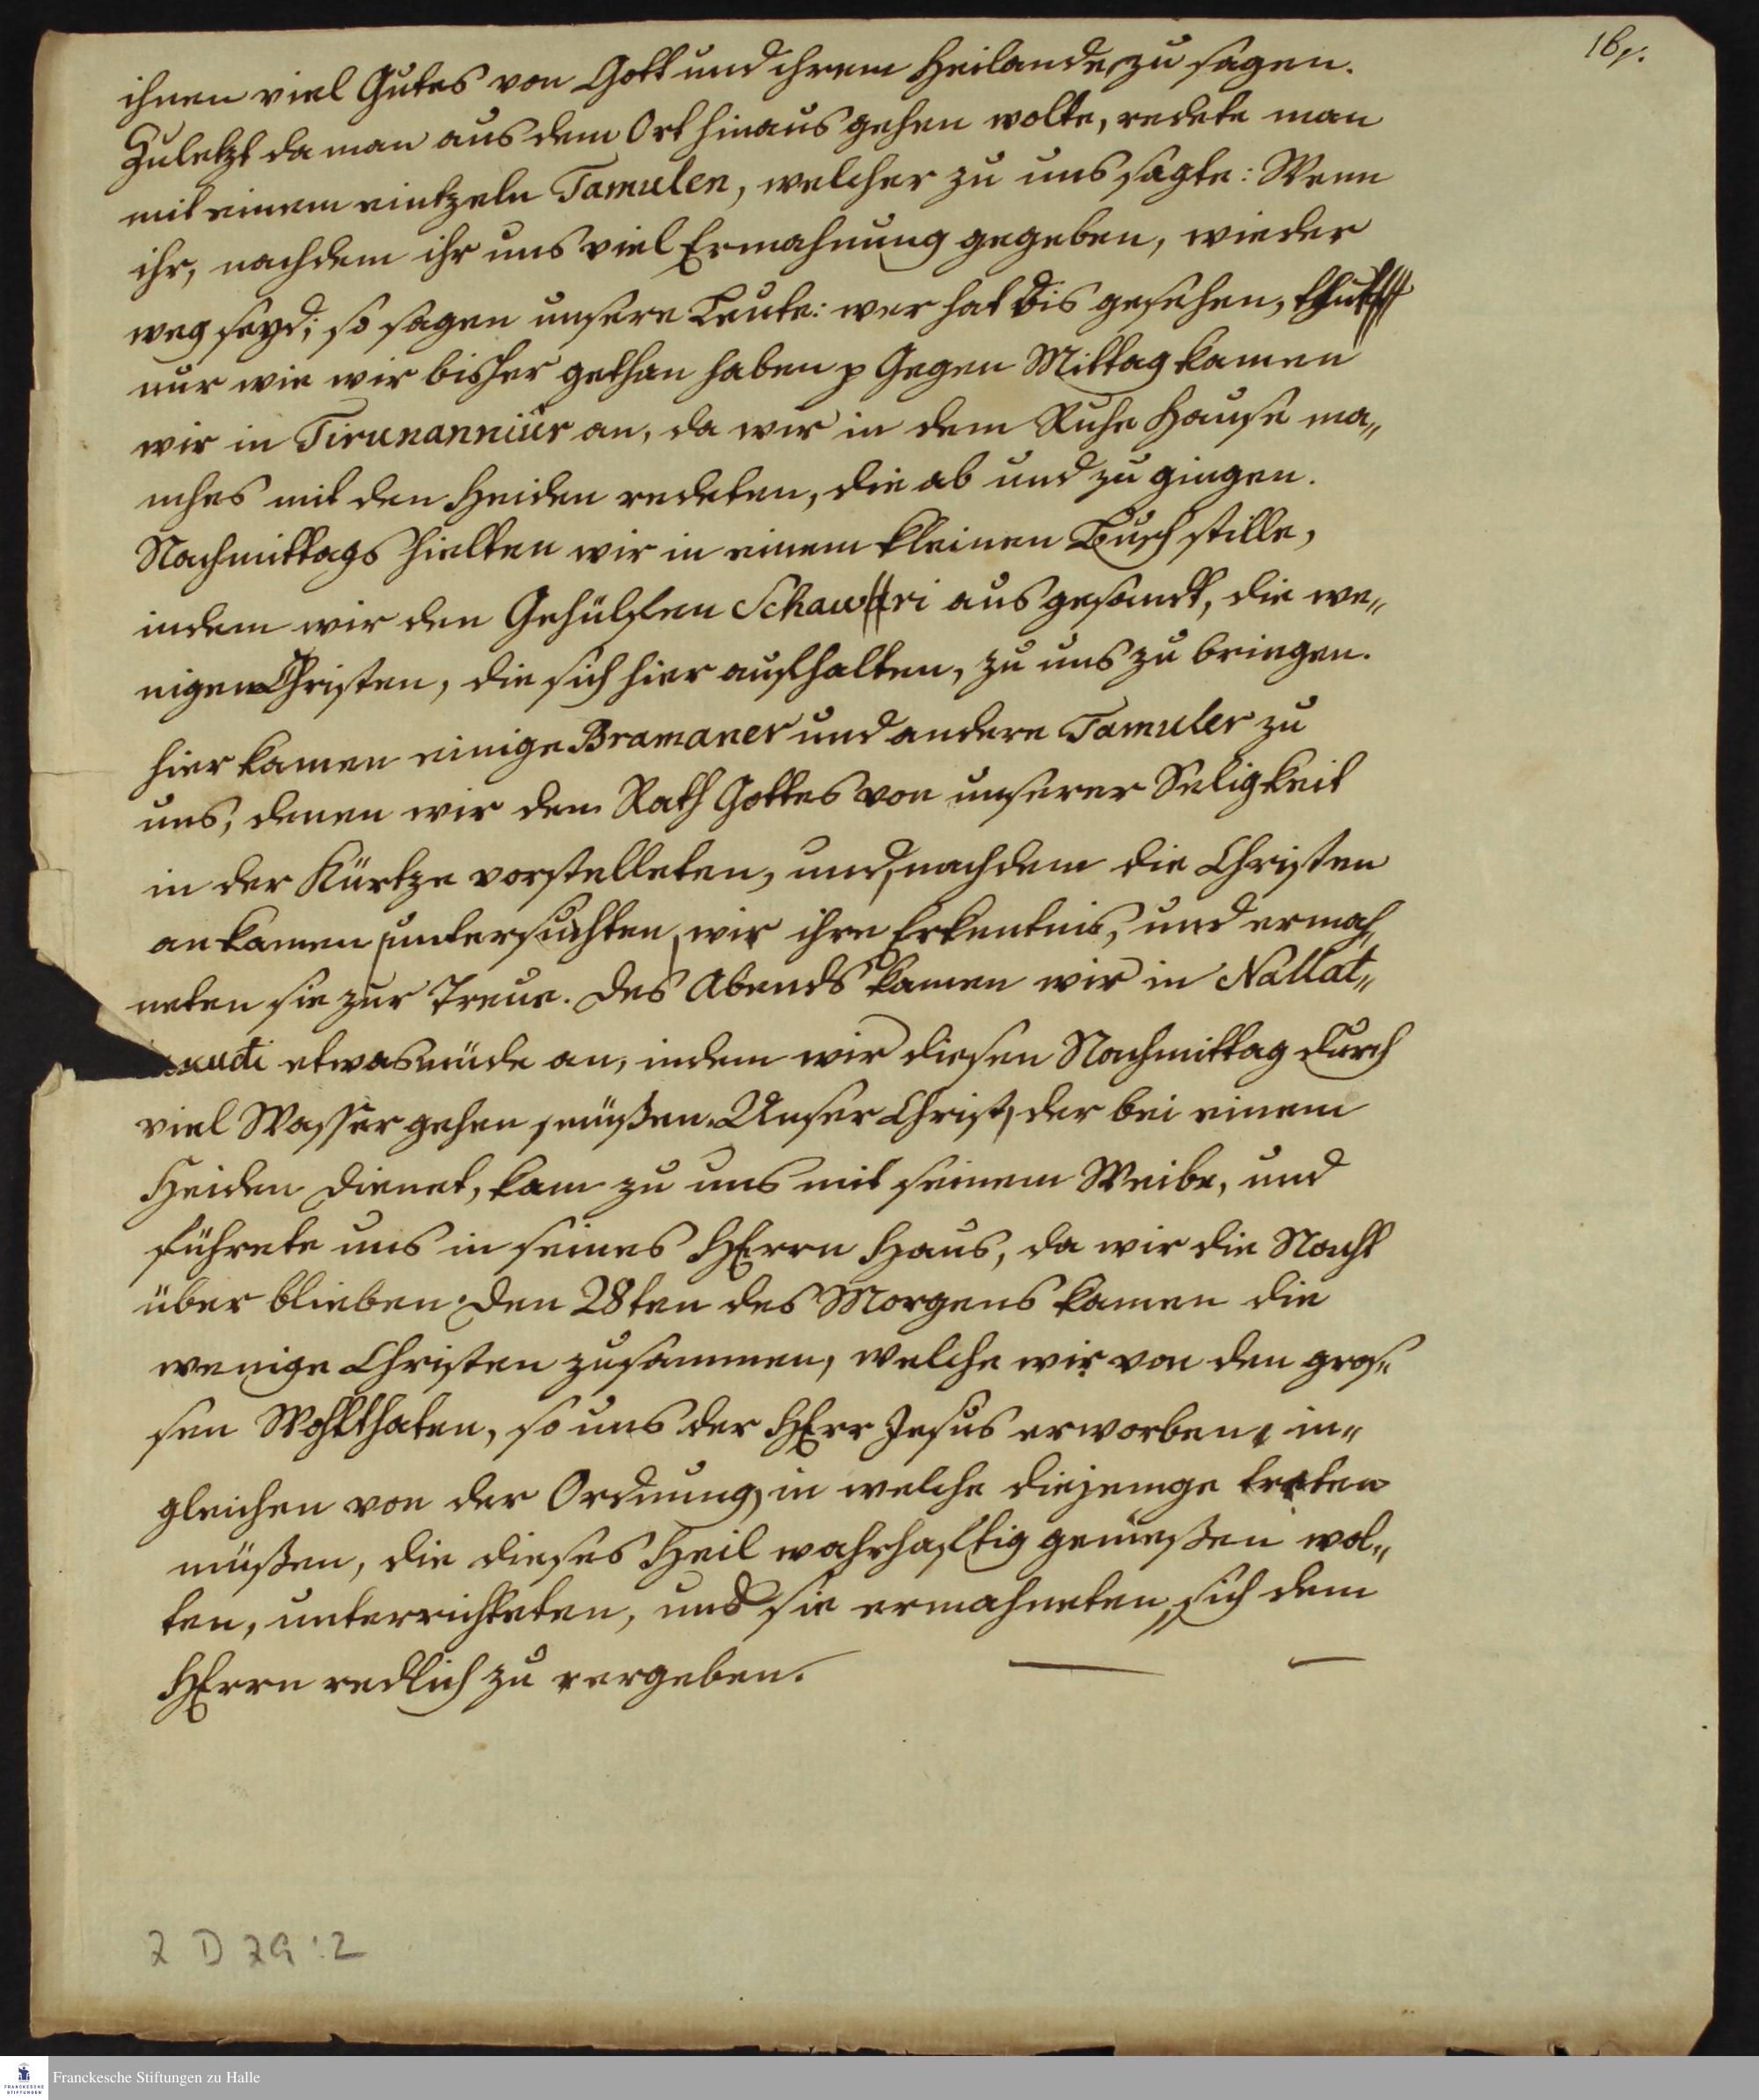 16p.
ihnen viel Gutes von Gott und ihrem Heilande zu sagen.
Zuletzt da man aus dem Ort hinaus gehen wolte, redete man
mit einem eintzeln Tamulen, welcher zu uns sagte: Wenn
ihr, nachdem ihr uns viel Ermahnung gegeben, wieder
weg seyd; so sagen unsere Leute: wer hat dis gesehen, thut
nur wie wir bisher gethan haben p Gegen Mittag kamen
wir in Tirunanniur an, da wir in dem Ruhe Hause ma„
nches mit den Heiden redeten, die ab und zu gingen.
Nachmittags hielten wir in einem kleinen Busch stille,
indem wir den Gehülfen Schawri ausgesandt, die we„
nigen Christen, die sich hier aufhalten, zu uns zu bringen.
hier kamen einige Bramaner und andere Tamuler zu
uns, denen wir den Rath Gottes von unserer Seligkeit
in der Kürtze vorstelleten, und, nachdem die Christen
ankamen, untersuchten wir ihre Erkentnis, und ermah„
neten sie zur Treue. Des Abends kamen wir in Nallat„
etwas müde an, indem wir diesen Nachmittag durch
viel Wasser gehen müßen. Unser Christ, der bei einem
Heiden dienet, kam zu uns mit seinem Weibe, und
führete uns in seines HErrn Haus, da wir die Nacht
über blieben. Den 28ten des Morgens kamen die
wenige Christen zusammen, welche wir von den gros„
sen Wohlthaten, so uns der HErr Jesus erworben, in„
gleichen von der Ordnung, in welche diejenige treten
müßen, die dieses Heil wahrhafftig genießen wol„
ten, unterrichteten, und sie ermahneten, sich dem
HErrn redlich zu ergeben.
Z D 29:2
FRANCKESCHE
STIFTUNGEN
Franckesche Stiftungen zu Halle